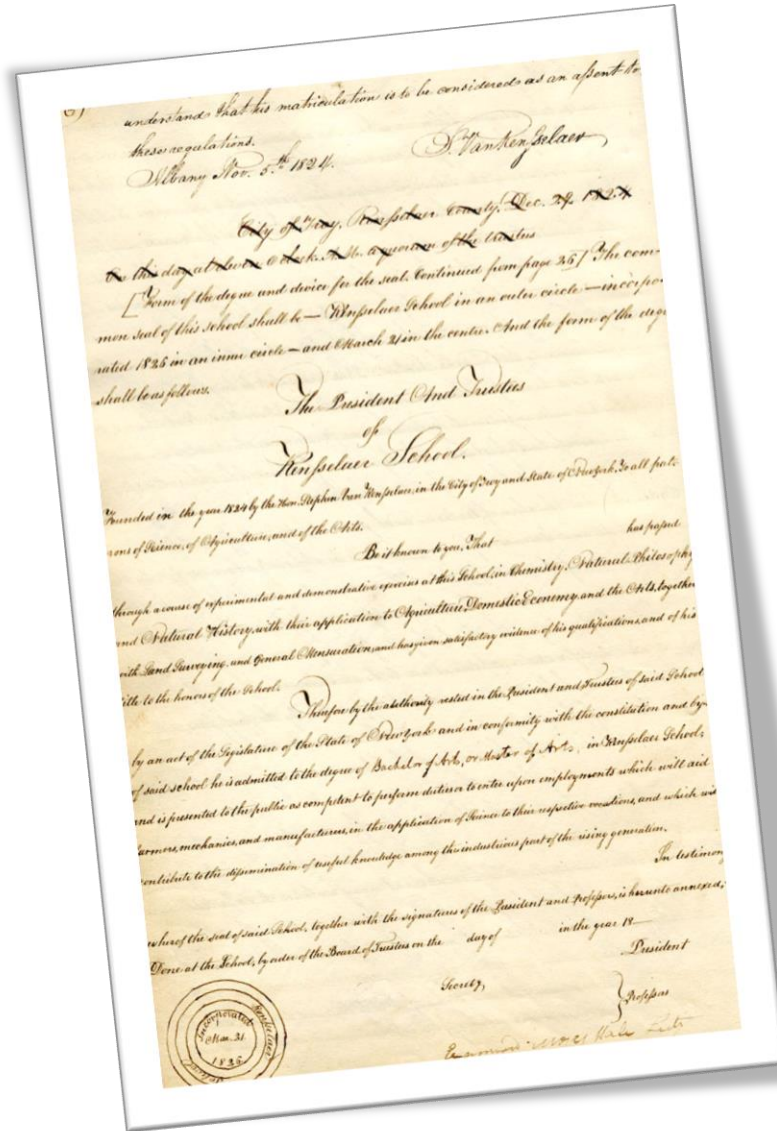 6)
understand that his matriculation is to be considered as an assent to
these regulations.
Albany Nov. 5th 1824.
S. Van Rensselaer
City of Troy, Rensselaer County, Dec. 29. 1824
On this day at eleven o'clock A.M. a quorum of the trustees
[Form of the degree and device for the seal. Continued from page 25] The com-
mon seal of this school shall be — Rensselaer School in an outer circle — incorpo-
rated 1826 in an inner circle — and March 21 in the centre. And the form of the degr
shall be as follows.
The President And Trustees
of
Rensselaer School.
Founded in the year 1824 by the Hon. Stephen Van Rensselaer, in the City of Troy and State of New York. To all pat-
rons of Science, of Agriculture, and of the Arts.
Be it known to you, That has passed
through a course of experimental and demonstrative exercises at this School, in Chemistry, Natural Philosophy
and Natural History, with their application to Agriculture, Domestic Economy, and the Arts, together
with Land Surveying, and General Mensuration, and has given satisfactory evidence of his qualifications, and of his
title to the honors of the School.
Therefore by the authority vested in the President and Trustees of said School
by an act of the Legislature of the State of New York and in conformity with the constitution and by-
of said school he is admitted to the degree of Bachelor of Arts, or Master of Arts, in Rensselaer School;
and is presented to the public as competent to perform duties or to enter upon employments which will aid
farmers, mechanics, and manufacturers, in the application of Science to their respective vocations, and which will
contribute to the dissemination of useful knowledge among the industrious part of the rising generation.
In testimony
whereof the seal of said School, together with the signatures of the President and Professors, is hereunto annexed;
Done at the School, by order of the Board of Trustees on the day of in the year 18—
President
Secrety,
} Professors
Rensselaer
School
Incorporated
Mar. 21
1826